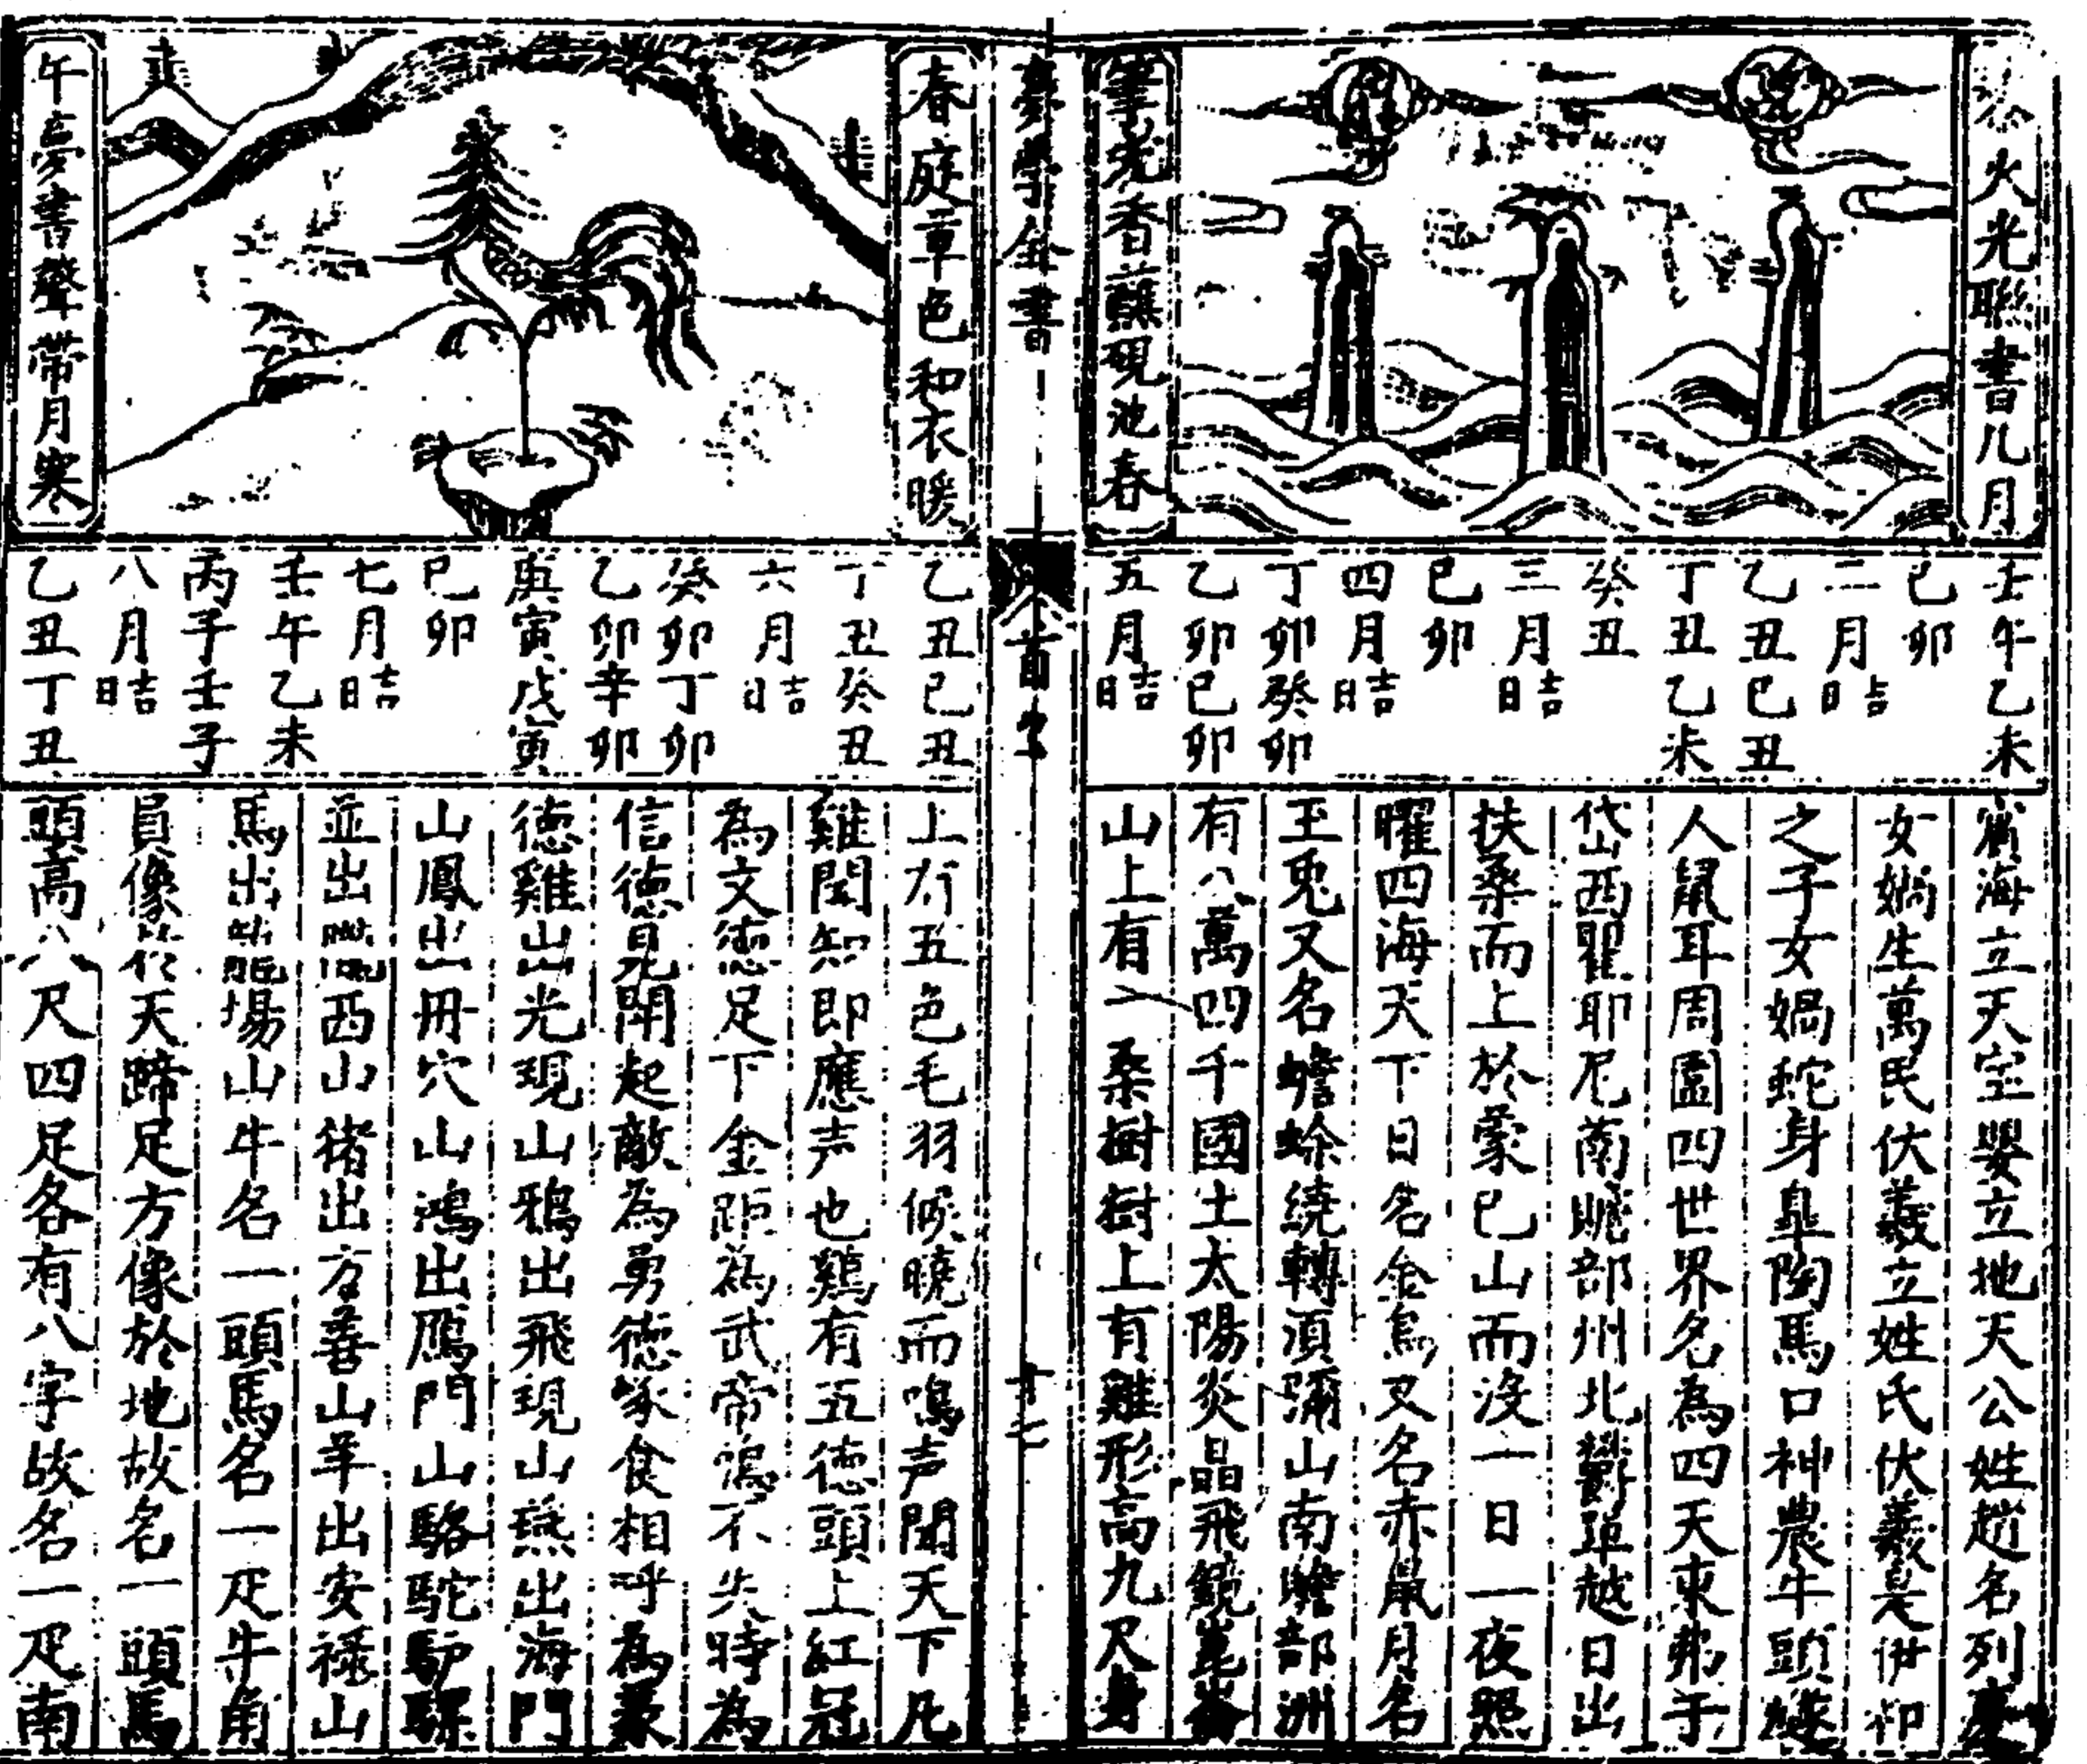 火光聯書几月
筆 香蘸硯池春
壬午乙未
己卯
二月吉日
乙丑己丑
丁丑乙未
癸丑
三月吉日
己卯
四月吉日
丁卯癸卯
乙卯己卯
五月吉日
海立天 嬰立地天公姓趙名列
女媧生萬民伏羲立姓氏伏羲是伊
之子女媧蛇身臯陶馬口神農牛頭
人鼠耳周圍四世界名為四天東弗于
岱西瞿耶尼南贍部州北欝單越日出
扶桑而上於蒙巳山而沒一日一夜照
曜四海天下日名金烏又名赤鼠月名
玉兎又名蟾蜍繞轉須彌山南贍部洲
有八萬四千國土太陽炎晶飛鏡崑崙
山上有一桑樹樹上有雞形高九尺身
全書
首
十二
春庭草色和衣暖
午夢書聲帶月寒
乙丑己丑
丁丑癸丑
六月吉日
癸卯丁卯
乙卯辛卯
庚寅戊寅
己卯
七月吉日
壬午乙未
丙子壬子
八月吉日
乙丑丁丑
上有五色毛羽候曉而鳴声聞天下凡
雞聞知即應声也鷄有五徳頭上紅冠
為文徳足下金距為武帝鳴不失時為
信徳見闘起敵為勇徳啄食相呼為義
徳雞山光現山鴉出飛現山燕出海門
山鳳出丹穴山鴻出鴈門山駱駝馿騾
並出 西山猪出方善山羊出安祿山
馬出 場山牛名一頭馬名一疋牛角
員像 天蹄足方像於地故名一頭馬
頭高八尺四足各有八字故名一疋南